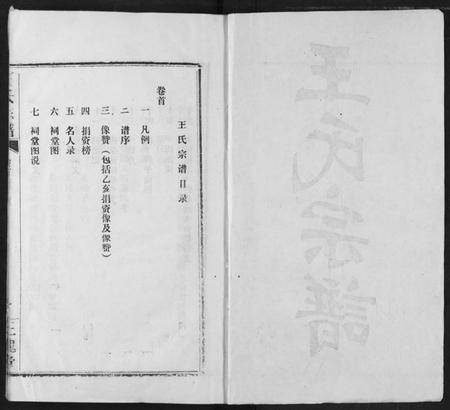 王氏宗谱
王氏宗谱目录
卷首
一 凡例
二 谱序
三 像赞（包括乙亥捐资像及像赞）
四 捐资榜
五 名人录
六 祠堂图
七 祠堂图说